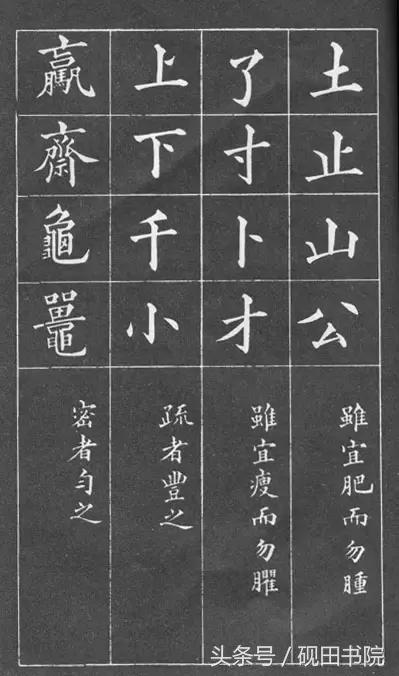 土止山公
雖宜肥而勿腫
了寸卜才
雖宜瘦而勿臞
上下千小
疏者豐之
齋龜鼉
密者勻之
头条号/砚田书院